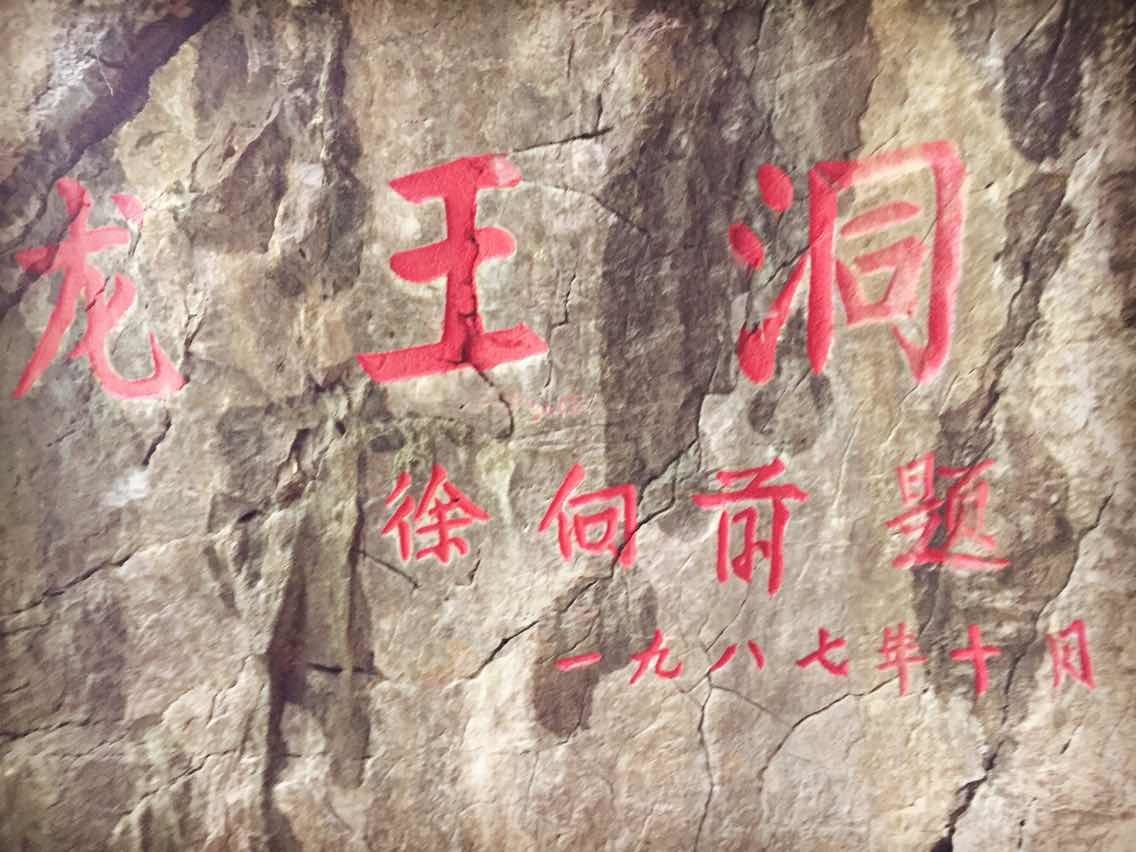 龙王洞
徐向前题
一九八七年十月